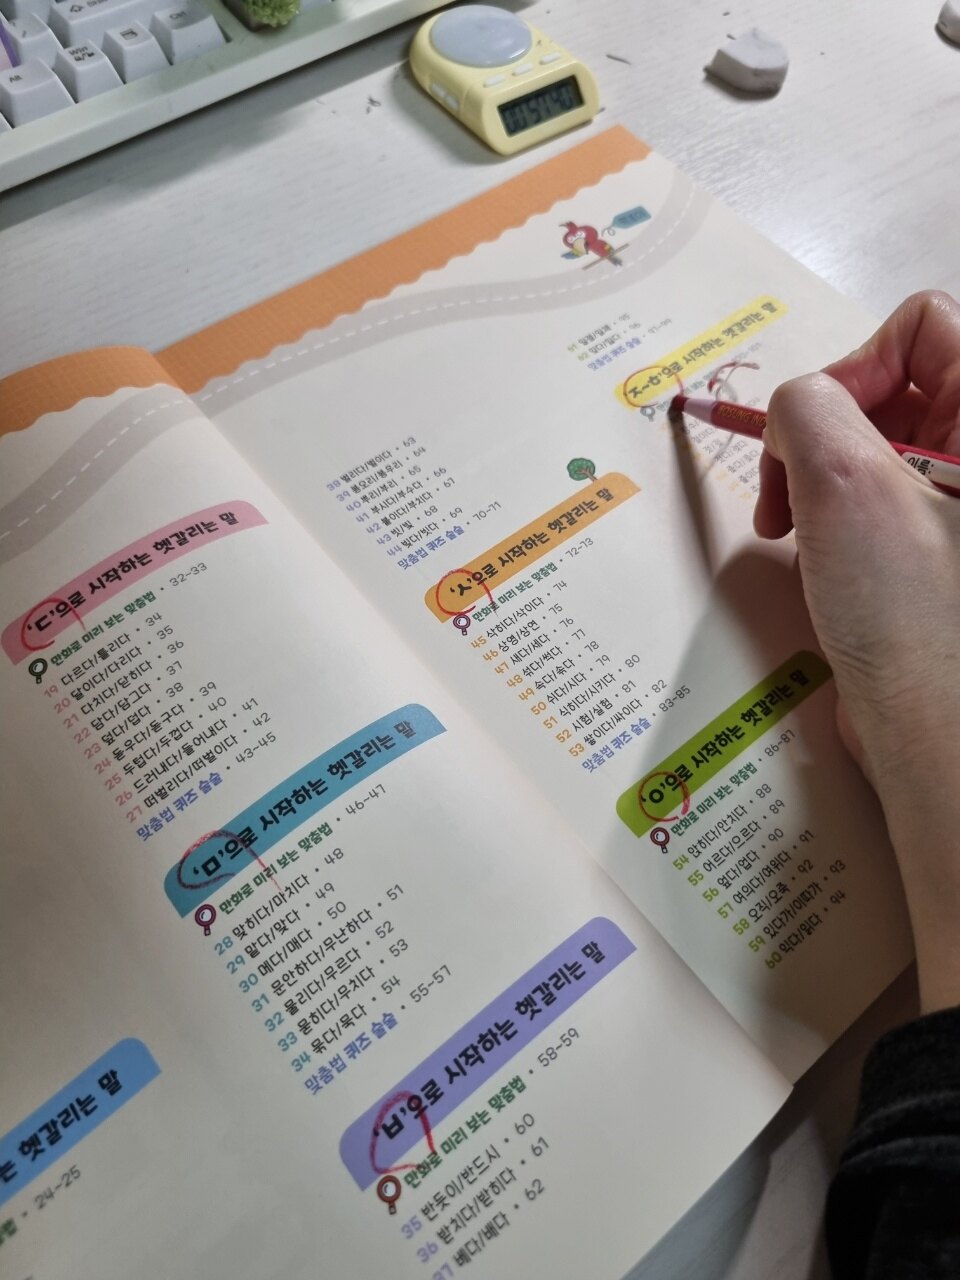 Alt
Win
Ctrl
차례
'ㄷ'으로 시작하는 헷갈리는 말
만화로 미리 보는 맞춤법 • 32~33
19 다르다/틀리다 • 34
20 달이다/다리다 • 35
21 다치다/닫히다 • 36
22 담다/담그다 • 37
23 덮다/덥다 • 38
24 돋우다/돋구다 • 39
25 두텁다/두껍다 • 40
26 드러내다/들어내다 • 41
27 떠벌리다/떠벌이다 • 42
맞춤법 퀴즈 술술 • 43~45
'ㅁ'으로 시작하는 헷갈리는 말
만화로 미리 보는 맞춤법 • 46~47
28 맞히다/마치다 • 48
29 맡다/맞다 • 49
30 메다/매다 • 50
31 문안하다/무난하다 • 51
32 물리다/무르다 • 52
33 묻히다/무치다 • 53
34 묶다/묵다 • 54
맞춤법 퀴즈 술술 • 55~57
는 헷갈리는 말
24~25
'ㅂ'으로 시작하는 헷갈리는 말
만화로 미리 보는 맞춤법 • 58~59
35 반듯이/반드시 • 60
36 받치다/받히다 • 61
37 베다/배다 • 62
38 벌리다/벌이다 • 63
39 봉오리/봉우리 • 64
40 뿌리/부리 • 65
41 부시다/부수다 • 66
42 붙이다/부치다 • 67
43 빗/빛 • 68
44 빚다/빗다 • 69
맞춤법 퀴즈 술술 • 70~71
'ㅅ'으로 시작하는 헷갈리는 말
만화로 미리 보는 맞춤법 • 72~73
45 삭히다/삭이다 • 74
46 상영/상연 • 75
47 새다/세다 • 76
48 섞다/썩다 • 77
49 속다/솎다 • 78
50 쉬다/시다 • 79
51 식히다/시키다 • 80
52 시험/실험 • 81
53 쌓이다/싸이다 • 82
맞춤법 퀴즈 술술 • 83~85
'ㅇ'으로 시작하는 헷갈리는 말
만화로 미리 보는 맞춤법 • 86~87
54 앉히다/안치다 • 88
55 어르다/으르다 • 89
56 엎다/업다 • 90
57 여의다/여위다 • 91
58 오직/오죽 • 92
59 있다가/이따가 • 93
60 익다/읽다 • 94
• 95
• 96
맞춤법 퀴즈 술술 • 97~99
'ㅈ~ㅎ'으로 시작하는 헷갈리는 말
이름: